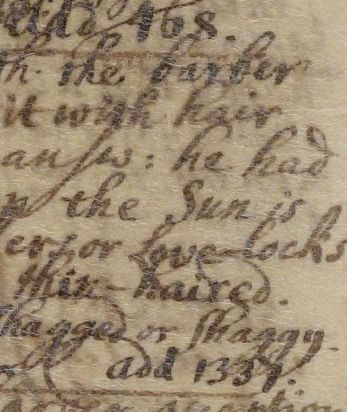 168.
th. the barber
it with hair
answ: he had
the Sun is
or love-locks
thin-haired.
shagged or shaggy.
add 1337.